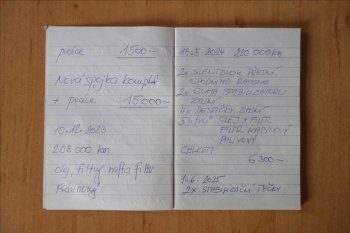 práce 1500,-
Nová spojka komplet
+ práce 15000,-
10.12.2023
208 000 km
olej, filtry nafta filtr
Kabinový
18.5.2024 220 000 km
2x SILENTBLOK PŘEDNÍ
SPODNÍHO RAMENE
2x GUMA STABILIZÁTORU
ZADNÍ
4x DESTIČKY ZADNÍ
5l OLEJ + FILTR
FILTR KABINOVÝ
PALIVOVÝ
CELKEM
6300,-
1.6.2025
2x STABILIZAČNÍ TYČKY